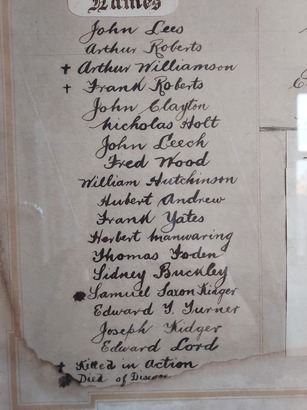 Names
John Lees
Arthur Roberts
† Arthur Williamson
† Frank Roberts
John Clayton
Nicholas Holt
John Leech
Fred Wood
William Hutchinson
Hubert Andrew
Frank Yates
Herbert Manwaring
Thomas Foden
Sidney Buckley
✱ Samuel Saxon Kidger
Edward T. Turner
Joseph Kidger
Edward Lord
† Killed in Action
✱ Died of Disease